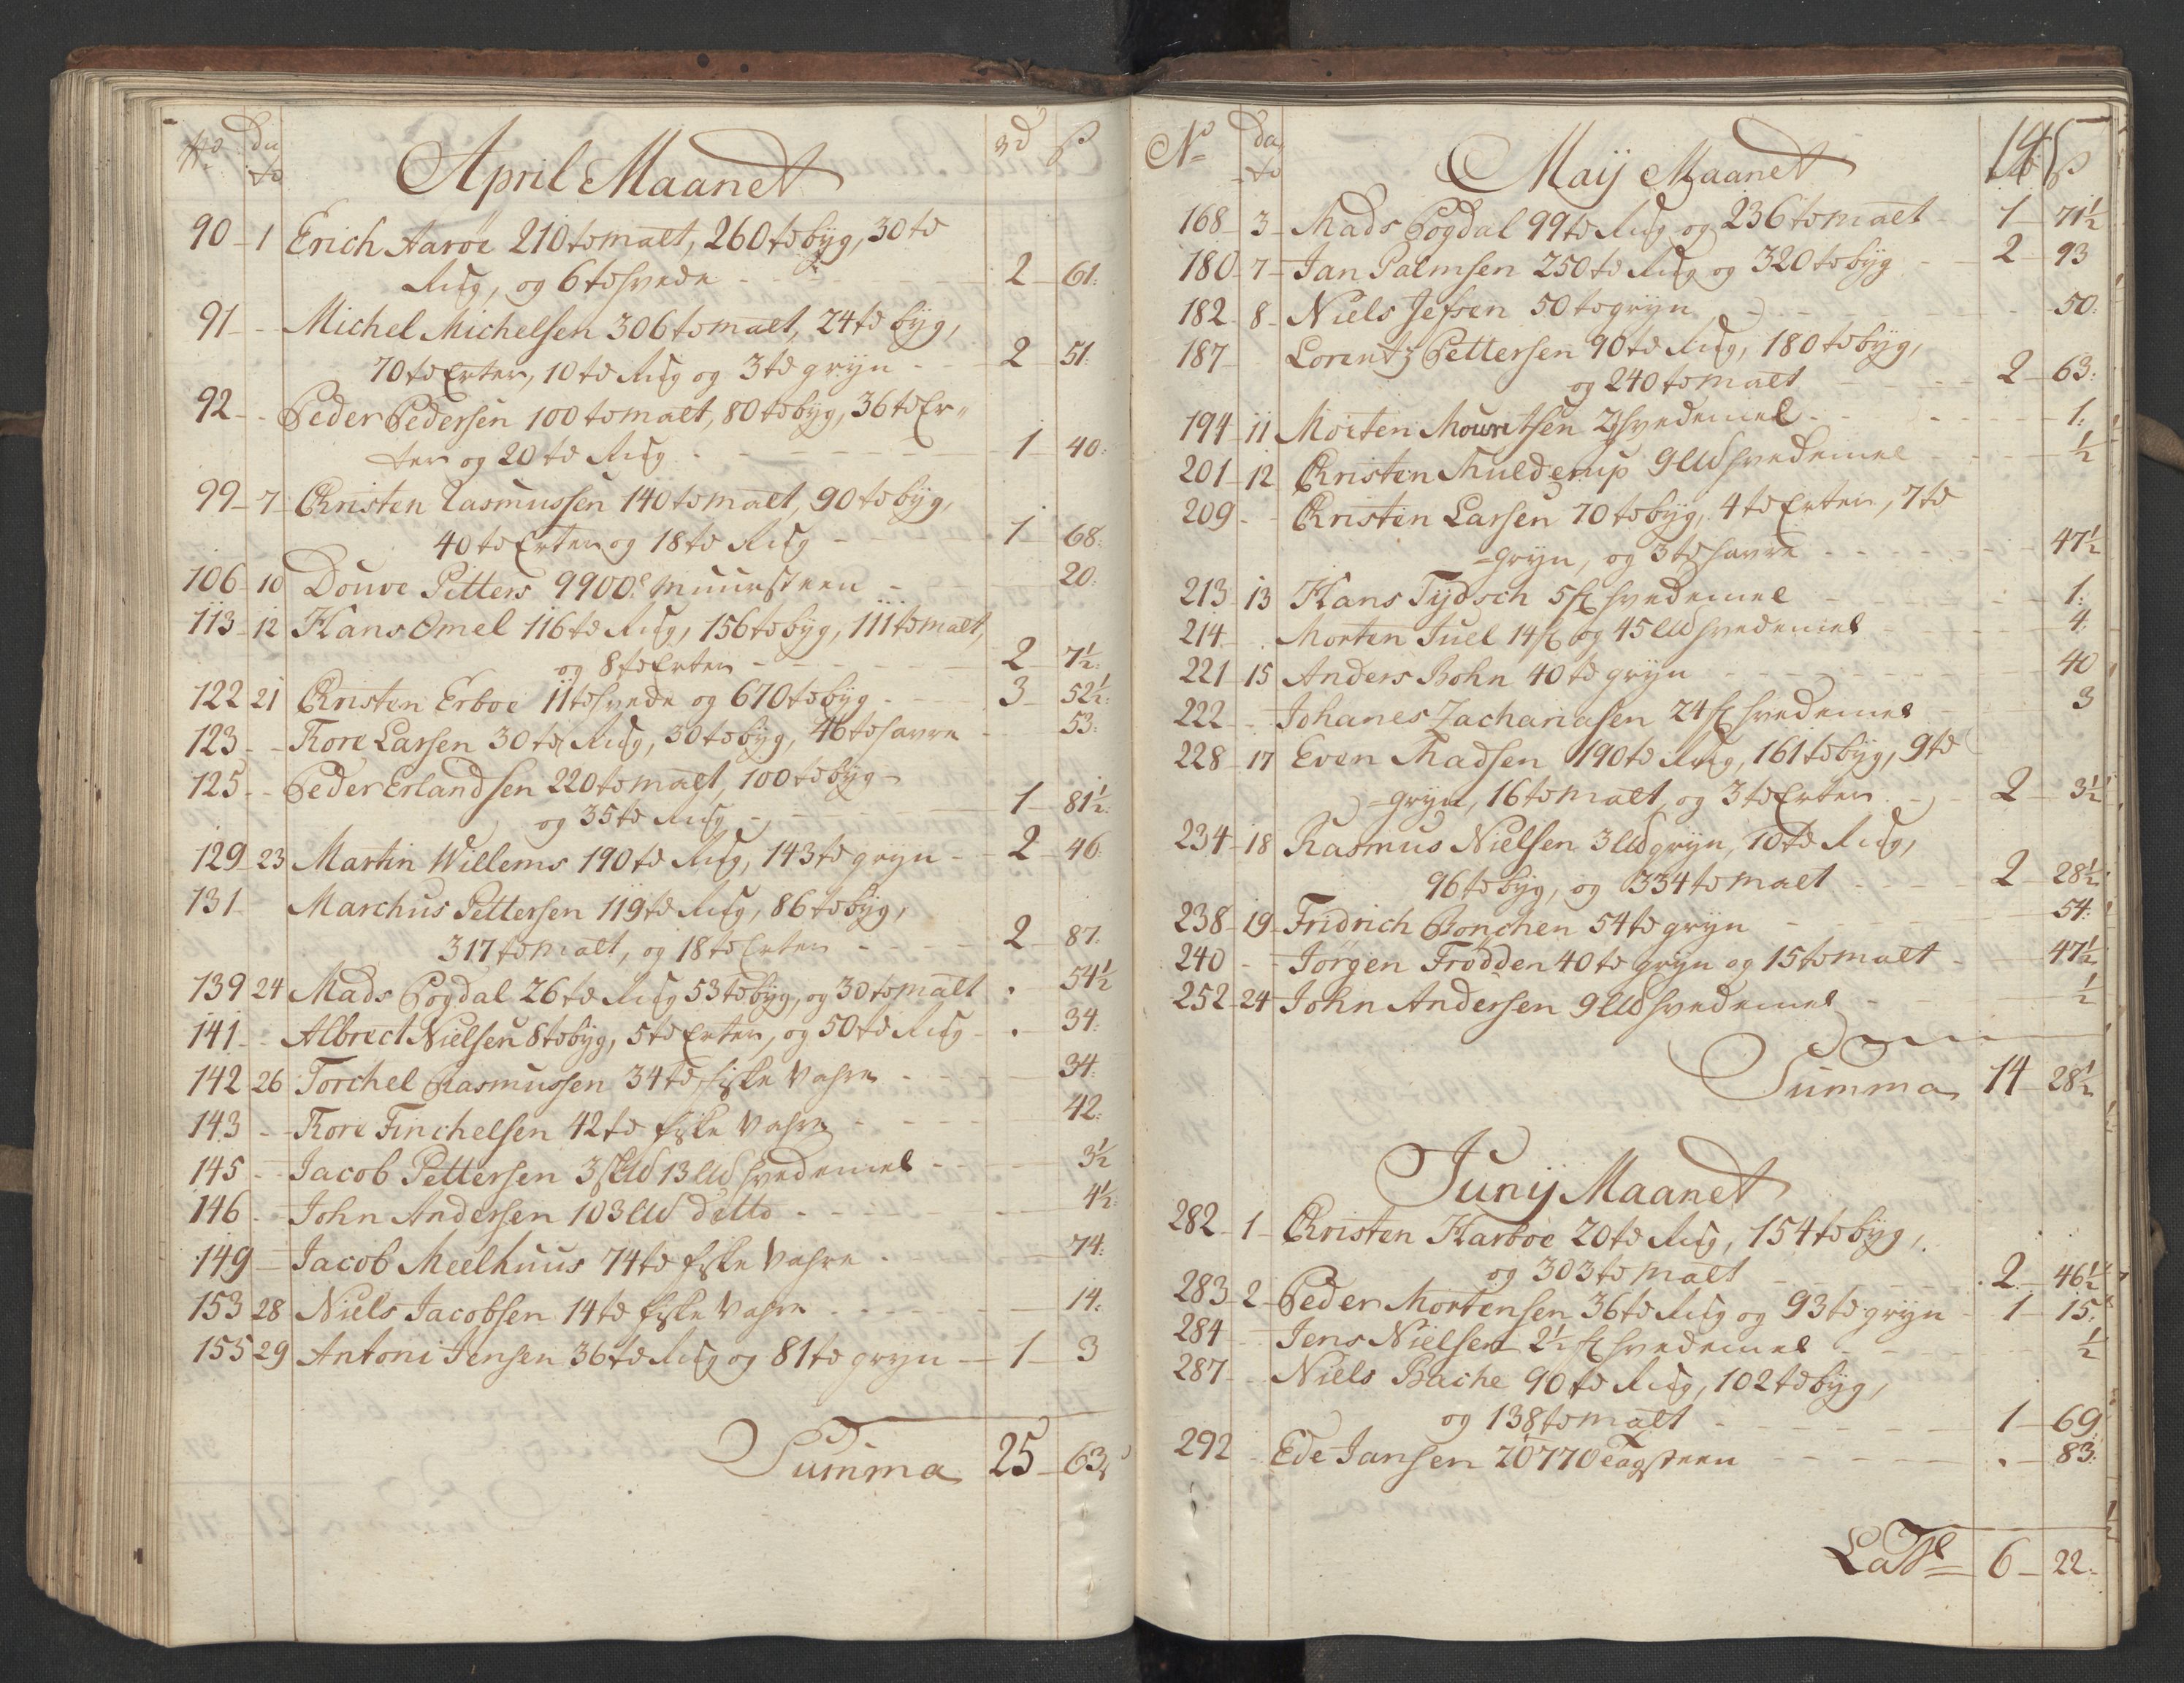 No dato April Maanet rd ß
90 1 Erich Aaroe 210 td malt, 260 td byg, 30 td
Rug, og 6 td hvede 2 61
91 Michel Michelsen 306 td malt, 24 td byg,
70 td Erter, 10 td Rug og 3 td gryn 2 51
92 Peder Pedersen 100 td malt, 80 td byg, 36 td Er-
ter og 20 td Rug 1 40
99 7 Christen Rasmussen 140 td malt, 90 td byg,
40 td Erter og 18 td Rug 1 68
106 10 Douve Pitters 9900 muursteen 20
113 12 Hans Omel 116 td Rug, 156 td byg, 111 td malt,
og 8 td Erter 2 7½
122 21 Christen Erboe 11 td hvede og 670 td byg 3 52½
123 Tore Larsen 30 td Rug, 30 td byg, 46 td havre 53
125 Peder Erlandsen 220 td malt, 100 td byg
og 35 td Rug 1 81½
129 23 Martin Willems 190 td Rug, 143 td gryn 2 46
131 Marchus Pettersen 119 td Rug, 86 td byg,
317 td malt, og 18 td Erter 2 87
139 24 Mads Pogdal 26 td Rug 53 td byg, og 30 td malt 54½
141 Albrect Nielsen 8 td byg, 5 td Erter, og 50 td Rug 34
142 26 Torchel Rasmussen 34 td fiske Vahre 34
143 Tore Finchelsen 42 td fiske Vahre 42
145 Jacob Pettersen 3 13 hvedemel 3½
146 John Andersen 103 ditto 4½
149 Jacob Meelhuus 74 td fiske Vahre 74
153 28 Niels Jacobsen 14 td fiske Vahre 14
155 29 Antoni Jensen 36 td Rug og 81 td gryn 1 3
Summa 25 63½
No dato Maij Maanet 145 ß
168 3 Mads Pogdal 99 td Rug og 236 td malt 1 71½
180 7 Jan Palmsen 250 td Rug og 320 td byg 2 93
182 8 Niels Jefsen 50 td gryn 50
187 Lorentz Pettersen 90 td Rug, 180 td byg,
og 240 td malt 2 63
194 11 Morten Mouritsen hvedemel 1
201 12 Christen Mulderup 9 hvedemel ½
209 Christen Larsen 70 td byg, 4 td Erter, 7 td
gryn, og 3 td havre 47½
213 13 Hans Tydsch 5 hvedemel 1
214 Morten Juel 14 og 45 hvedemel 4
221 15 Anders Bohn 40 td gryn 40
222 Johanes Zachariasen 24 hvedemel 3
228 17 Even Madsen 190 td Rug, 161 td byg, 9 td
gryn, 16 td malt, og 3 td Erter 2 3½
234 18 Rasmus Nielsen 3 gryn, 10 td Rug,
96 td byg, og 334 td malt 2 28½
238 19 Fridrich Ponchen 54 td gryn 54
240 Jørgen Frødden 40 td gryn og 15 td malt 47½
252 24 John Andersen 9 hvedemel ½
Summa 14 28½
Junij Maanet
282 1 Christen Harboe 20 td Rug, 154 td byg,
og 303 td malt 2 46½
283 2 Peder Mortensen 36 td Rug og 93 td gryn 1 15
284 Jens Nielsen 2½ hvedemel ½
287 Niels Bache 90 td Rug, 102 td byg,
og 138 td malt 1 69
292 Ede Jansen 20770 Tagsteen 83
Latus 6 22